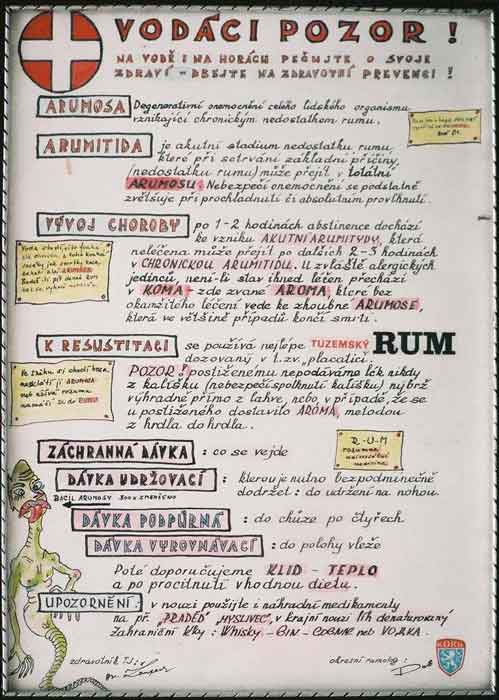 VODÁCI POZOR !
NA VODĚ I NA HORÁCH PEČUJTE O SVOJE
ZDRAVÍ - DBEJTE NA ZDRAVOTNÍ PREVENCI !
ARUMOSA Degenerativní onemocnění celého lidského organismu
vznikající chronickým nedostatkem rumu.
ARUMITIDA je akutní stadium nedostatku rumu,
které při setrvání základní příčiny,
(nedostatku rumu) může přejít v totální
ARUMOSU. Nebezpečí onemocnění se podstatně
zvětšuje při prochladnutí či absolutním provlhnutí.
VÝVOJ CHOROBY po 1-2 hodinách abstinence dochází
ke vzniku AKUTNÍ ARUMITYDY, která
neléčena může přejít po dalších 2-3 hodinách
v CHRONICKOU ARUMITIDU. U zvláště alergických
jedinců, není-li stav ihned léčen přechází
v KOMA - zde zvané AROMA, které bez
okamžitého léčení vede ke zhoubné ARUMOSE,
která ve většině případů končí smrtí.
K RESUSTITACI se používá nejlépe TUZEMSKÝ RUM
dozovaný v t.zv. „placatici"
POZOR! postiženému nepodáváme lék nikdy
z kalíšku (nebezpečí spolknutí kalíšku) nýbrž
výhradně přímo z lahve, nebo v případě, že se
u postiženého dostavilo AROMA, metodou
z hrdla do hrdla.
R-U-M
ZÁCHRANNÁ DÁVKA : co se vejde
DÁVKA UDRŽOVACÍ : kterou je nutno bezpodmínečně
dodržet : do udržení na nohou.
BACIL ARUMOSY 300x ZMENŠENO
DÁVKA PODPŮRNÁ : do chůze po čtyřech
DÁVKA VYROVNÁVACÍ : do polohy vleže
Poté doporučujeme KLID - TEPLO
a po procitnutí vhodnou dietu.
UPOZORNĚNÍ : v nouzi použijte i náhradní medikamenty
na př. „PRADĚD" „MYSLIVEC", v krajní nouzi líh denaturovaný
Zahraniční léky : Whisky - GIN - COGNAC neb VODKA.
zdravotník TJ :
okresní rumolog :